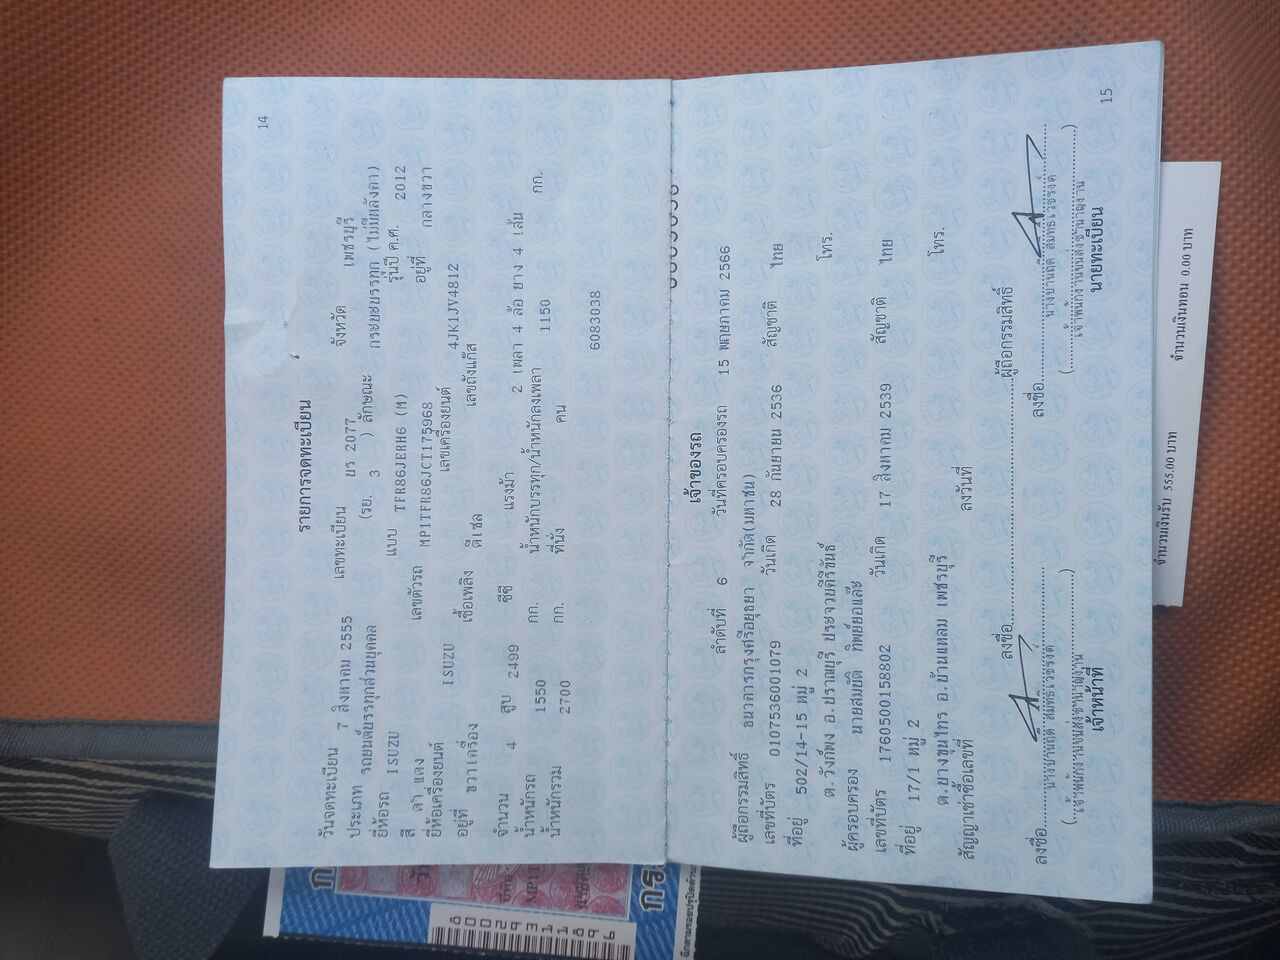 14
รายการจดทะเบียน
วันจดทะเบียน 7 สิงหาคม 2555 เลขทะเบียน บร 2077 จังหวัด เพชรบุรี
ประเภท รถยนต์บรรทุกส่วนบุคคล (รย. 3 ) ลักษณะ กระบะบรรทุก (ไม่มีหลังคา)
ยี่ห้อรถ ISUZU แบบ TFR86JERH6 (M) รุ่นปี ค.ศ. 2012
สี ดำ,แดง เลขตัวรถ MP1TFR86JCT175968 อยู่ที่ กลางขวา
ยี่ห้อเครื่องยนต์ ISUZU เลขเครื่องยนต์ 4JK1JV4812
อยู่ที่ ขวาเครื่อง เชื้อเพลิง ดีเซล เลขถังแก๊ส
จำนวน 4 สูบ 2499 ซีซี แรงม้า 2 เพลา 4 ล้อ ยาง 4 เส้น
น้ำหนักรถ 1550 กก. น้ำหนักบรรทุก/น้ำหนักลงเพลา 1150 กก.
น้ำหนักรวม 2700 กก. ที่นั่ง คน
6083038
เจ้าของรถ
ลำดับที่ 6 วันที่ครอบครองรถ 15 พฤษภาคม 2566
ผู้ถือกรรมสิทธิ์ ธนาคารกรุงศรีอยุธยา จำกัด(มหาชน)
เลขที่บัตร 0107536001079 วันเกิด 28 กันยายน 2536 สัญชาติ ไทย
ที่อยู่ 502/14-15 หมู่ 2
ต.วังก์พง อ.ปราณบุรี ประจวบคีรีขันธ์ โทร.
ผู้ครอบครอง นายสมบัติ ทิพย์ยอแล๊ะ
เลขที่บัตร 1760500158802 วันเกิด 17 สิงหาคม 2539 สัญชาติ ไทย
ที่อยู่ 17/1 หมู่ 2
ต.บางขุนไทร อ.บ้านแหลม เพชรบุรี โทร.
สัญญาเช่าซื้อเลขที่ ลงวันที่
ลงชื่อ ผู้ถือกรรมสิทธิ์
ลงชื่อ ลงชื่อ
เจ้าพนักงานขนส่งชำนาญงาน เจ้าพนักงานขนส่งชำนาญงาน
เจ้าหน้าที่ นายทะเบียน
15
จำนวนเงินรับ 555.00 บาท จำนวนเงินทอน 0.00 บาท